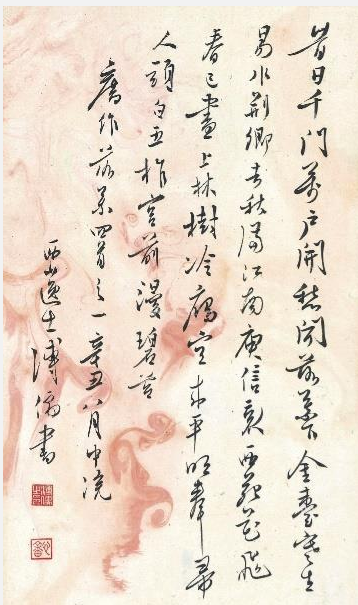 昔日千門萬戶開愁聞落葉下金臺寒生
易水荊卿去秋滿江南庾信哀西苑花飛
春已盡上林樹冷雁空來平明奉帚
人頭白五柞宮前漫碧苔
舊作落葉四首之一辛丑八月中浣
西山逸士溥儒書